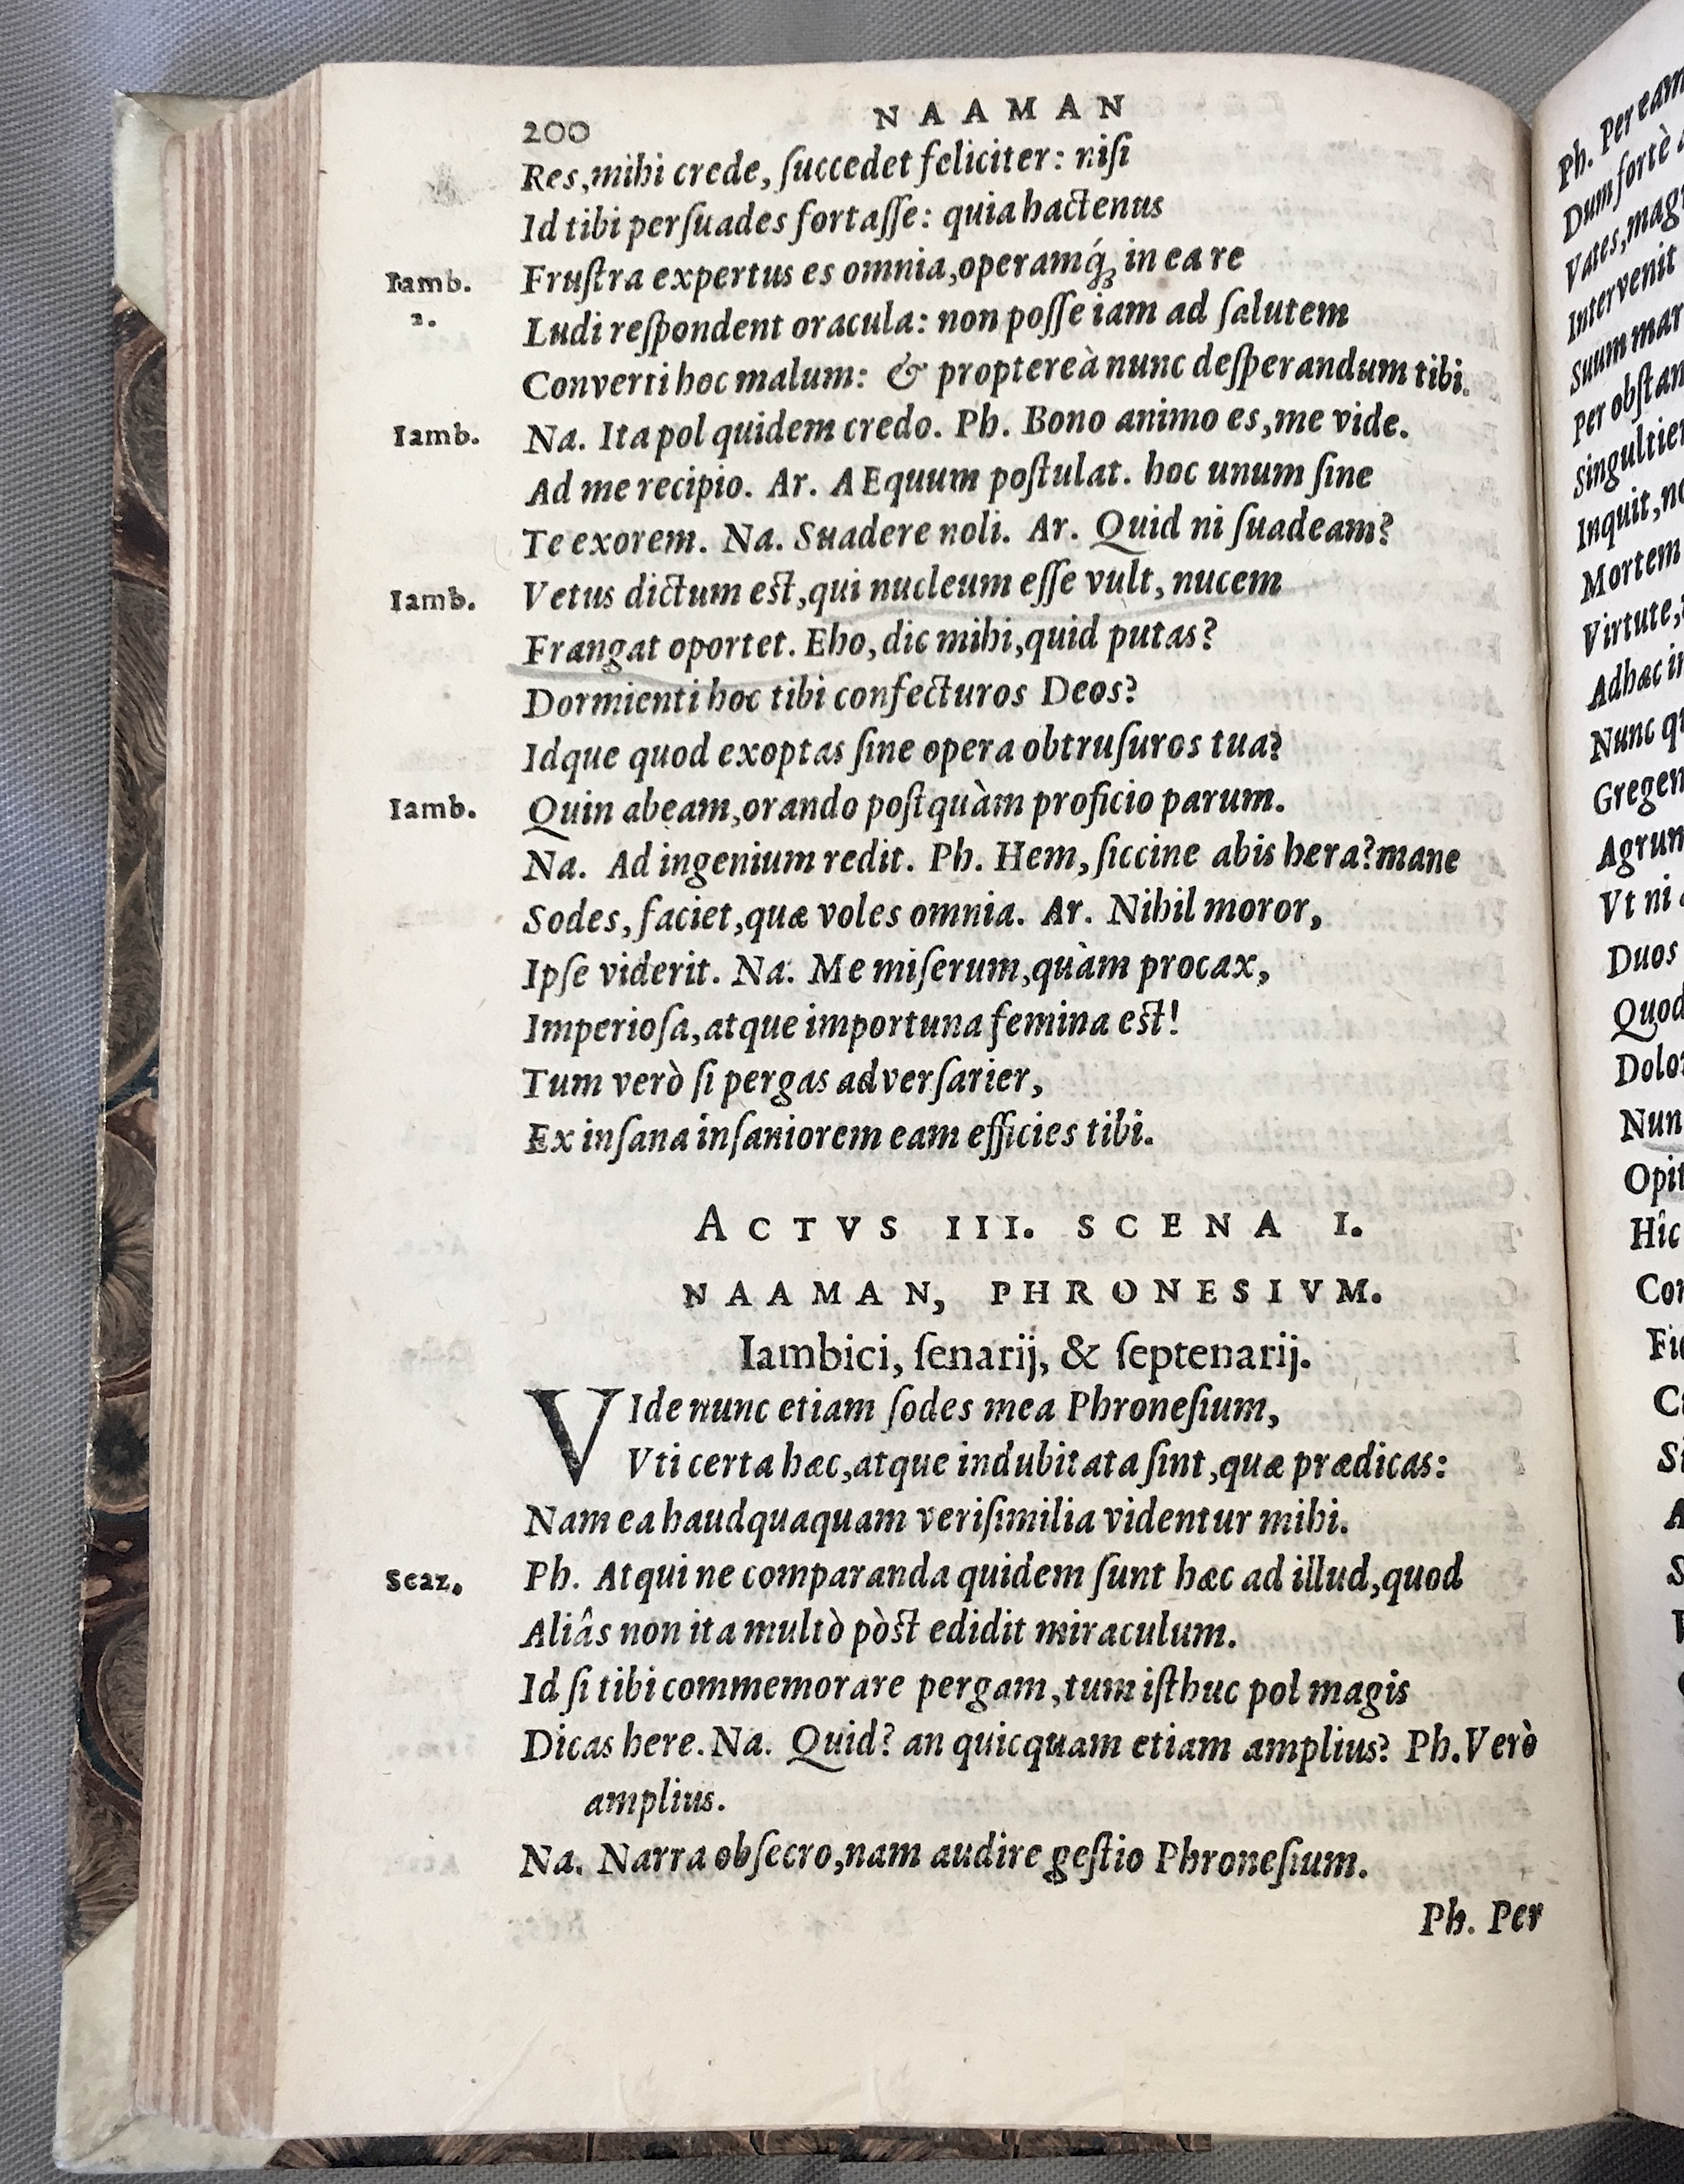 200
NAAMAN
Res, mihi crede, ſuccedet feliciter: niſi
Id tibi perſuades fortaſſe: quia hactenus
Iamb. 2. Fruſtra expertus es omnia, operamq́ꝫ in ea re
Ludi reſpondent oracula: non poſſe iam ad ſalutem
Converti hoc malum: & propterеà nunc deſperandum tibi.
Iamb. Na. Ita pol quidem credo. Ph. Bono animo es, me vide.
Ad me recipio. Ar. AEquum poſtulat. hoc unum ſine
Te exorem. Na. Suadere noli. Ar. Quid ni ſuadeam?
Iamb. Vetus dictum eſt, qui nucleum eſſe vult, nucem
Frangat oportet. Eho, dic mihi, quid putas?
Dormienti hoc tibi confecturos Deos?
Idque quod exoptas ſine opera obtruſuros tua?
Iamb. Quin abeam, orando poſtquàm proficio parum.
Na. Ad ingenium redit. Ph. Hem, ſiccine abis hera? mane
Sodes, faciet, quæ voles omnia. Ar. Nihil moror,
Ipſe viderit. Na. Me miſerum, quàm procax,
Imperioſa, atque importuna femina eſt!
Tum verò ſi pergas adverſarier,
Ex inſana inſaniorem eam efficies tibi.
ACTVS III. SCENA I.
NAAMAN, PHRONESIVM.
Iambici, ſenarij, & ſeptenarij.
VIde nunc etiam ſodes mea Phroneſium,
Vti certa hæc, atque indubitata ſint, quæ prædicas:
Nam ea haudquaquam veriſimilia videntur mihi.
Scaz. Ph. Atqui ne comparanda quidem ſunt hæc ad illud, quod
Aliâs non ita multò pòſt edidit miraculum.
Id ſi tibi commemorare pergam, tum iſthuc pol magis
Dicas here. Na. Quid? an quicquam etiam amplius? Ph. Verò
amplius.
Na. Narra obſecro, nam audire geſtio Phroneſium.
Ph. Per
Ph. Per eam
Dum fortè
Vates, mag
Intervenit
Suum mar
Per obſtan
Singultien
Inquit, no
Mortem
Virtute,
Adhæc in
Nunc qu
Gregem
Agrum
Vt ni
Duos
Quod
Dolo
Nun
Opit
Hîc
Con